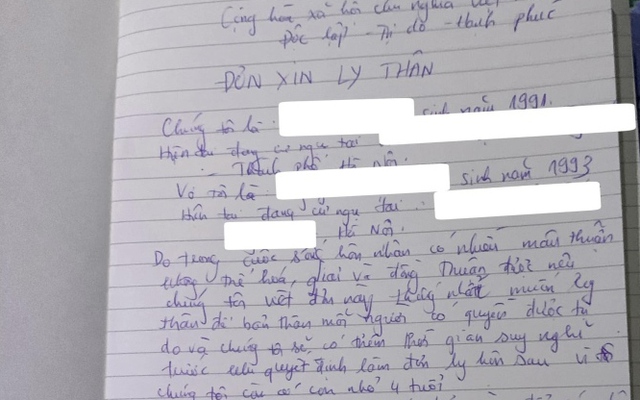 Cộng hòa xã hội chủ nghĩa Việt
Độc lập - Tự do - Hạnh phúc
ĐƠN XIN LY THÂN
Chúng tôi là: sinh năm 1991.
Hiện tại đang cư ngụ tại
- Thành phố Hà Nội.
Vợ tôi là: sinh năm 1993
Hiện tại đang cư ngụ tại:
Hà Nội.
Do trong cuộc sống hôn nhân có nhiều mâu thuẫn
không thể hoá giải và đồng thuận được nên
chúng tôi viết đơn này thống nhất muốn ly
thân để bản thân mỗi người có quyền được tự
do và chúng tôi sẽ có thêm thời gian suy nghĩ
trước khi quyết định làm đơn ly hôn sau vì
chúng tôi còn có con nhỏ 4 tuổi.